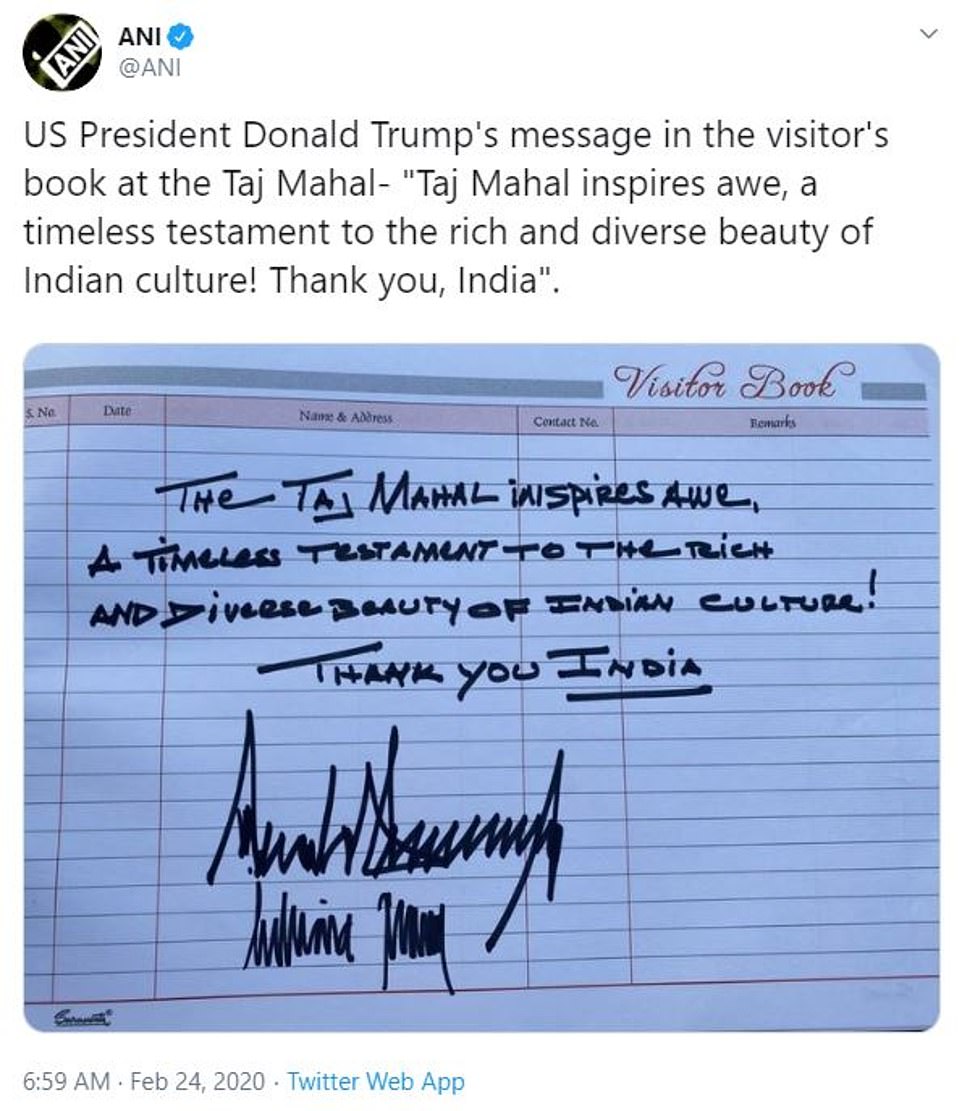 ANI
ANI
@ANI
US President Donald Trump's message in the visitor's
book at the Taj Mahal- "Taj Mahal inspires awe, a
timeless testament to the rich and diverse beauty of
Indian culture! Thank you, India".
Visitor Book
S. No. Date Name & Address Contact No. Remarks
THE TAJ MAHAL INSPIRES AWE,
A TIMELESS TESTAMENT TO THE RICH
AND DIVERSE BEAUTY OF INDIAN CULTURE!
THANK YOU INDIA
6:59 AM · Feb 24, 2020 · Twitter Web App